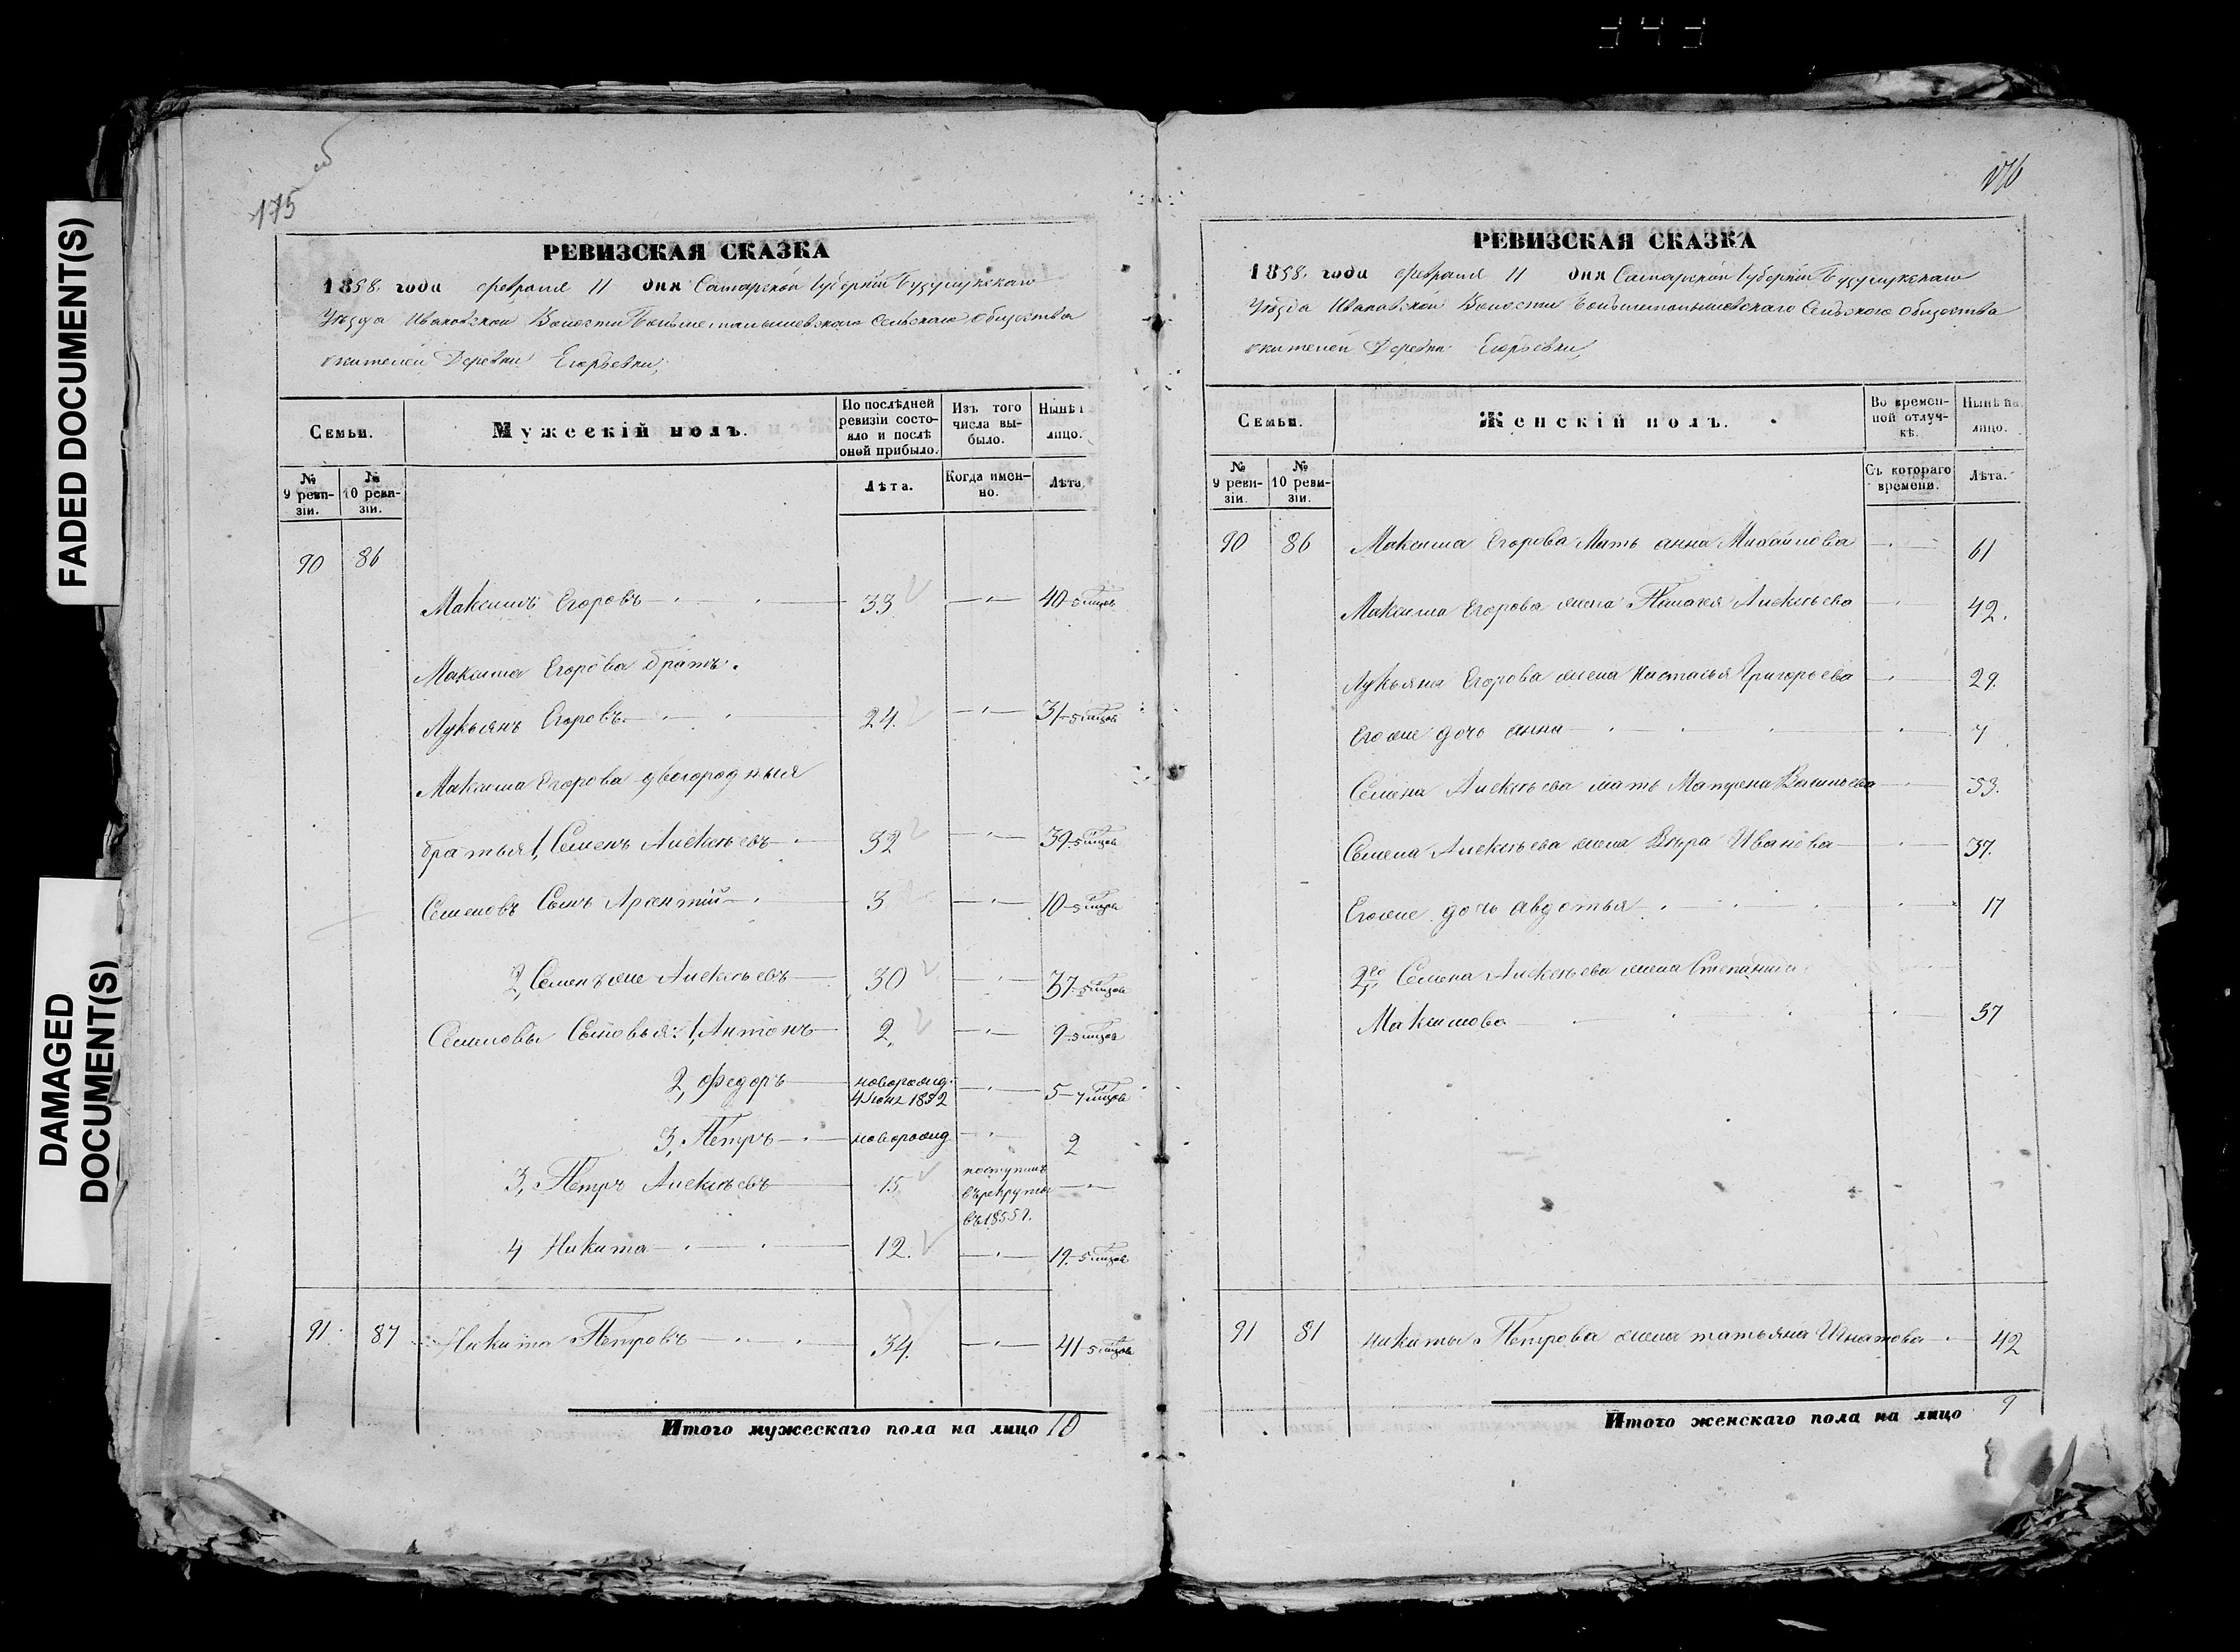 FADED DOCUMENT(S)
DAMAGED
DOCUMENT(S)
175
РЕВИЗСКАЯ СКАЗКА
1858. года февраля 11 дня Самарской Губернии Бузулукскаго
Уѣзда Ивановской Волости Сельскаго Общества
жителей Деревни Егорьевки,
Семьи.
Мужескій полъ.
По послѣдней
ревизіи состо-
яло и послѣ
оной прибыло.
Изъ того
числа вы-
было.
Нынѣ
лицо.
№
9 реви-
зіи.
№
10 реви-
зіи.
Лѣта.
Когда имен-
но.
Лѣта
90 86
Максимъ Егоровъ 33 40-5
Максима Егорова братъ.
Лукьянъ Егоровъ 24. 31-5
Максима Егорова двогородныя
братья 1, Семенъ Алексѣевъ 32 39-5
Семеновъ Сынъ Арсентій 3 10-5
2, Семенъ же Алексѣевъ 30 37-5
Семеновы Сыновья: 1, Антонъ 2, 9-5
2, Федоръ новорожд. 5-7
4 Июня 1852
3, Петръ новорожд 2
3, Петръ Алексѣевъ 15 поступилъ
въ рекруты
въ 1855 г.
4 Никита 12. 19-5
91. 87 Никита Петровъ 34. 41-5
Итого мужескаго пола на лицо 10
176
РЕВИЗСКАЯ СКАЗКА
1858. года февраля 11 дня Самарской Губерніи Бузулукскаго
Уѣзда Ивановской Волости Сельскаго Общества
жителей Деревни Егорьевки,
Семьи.
Женскій полъ.
Во времен-
ной отлуч-
кѣ.
Нынѣ на
лицо.
№
9 реви-
зіи.
№
10 реви-
зіи.
Съ котораго
времени.
Лѣта.
90 86 Максима Егорова Мать анна Михайлова 61
Максима Егорова жена Пелагея Алексѣева 42.
Лукьяна Егорова жена Настасья Григорьева 29.
Его же дочь анна 7
Семена Алексѣева мать Матрена Васильева 53.
Семена Алексѣева жена Вѣра Иванова 37.
Его же дочь авдотья 17
2го, Семена Алексѣева жена Степанида
Максимова 37
91 81 никиты Петрова жена татьяна Игнатова 42
Итого женскаго пола на лицо 9